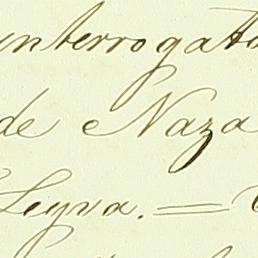 interrogato
de Naza
Leyva. =